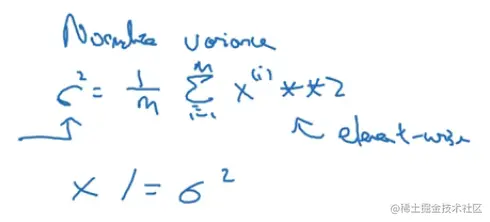 Normalize variance
σ² = 1/m Σ_{i=1}^{m} x^{(i)} ** 2
element-wise
x /= σ²
@稀土掘金技术社区